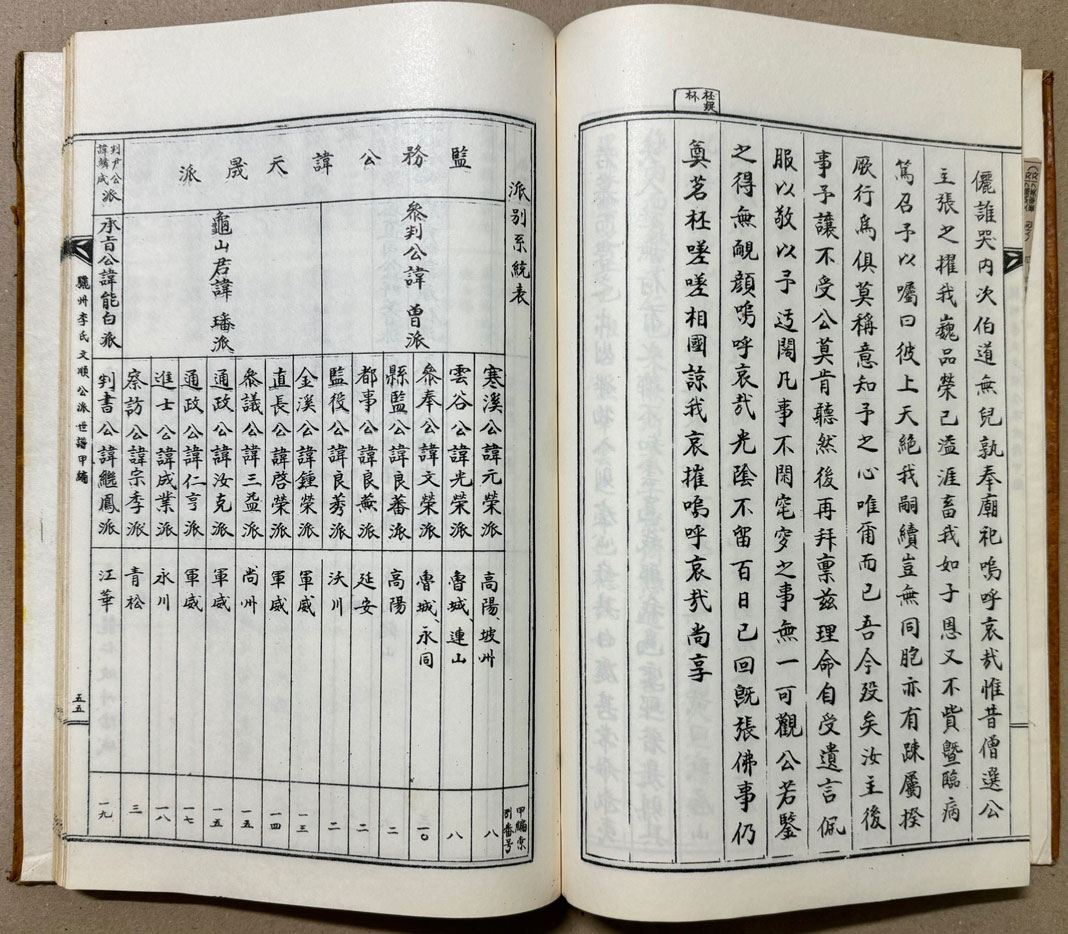 儷誰哭内次伯道無兒孰奉廟祀嗚呼哀哉惟昔僧選公
主張之擢我巍品榮已溢涯畜我如子恩又不貲曁臨病
篤召予以囑曰彼上天絶我嗣續豈無同胞亦有踈屬揆
厥行爲俱莫稱意知予之心唯爾而已吾今歿矣汝主後
事予讓不受公莫肯聽然後再拜禀兹理命自受遺言佩
服以敬以予迃闊凡事不閑窀穸之事無一可觀公若鑒
之得無覥顔嗚呼哀哉光陰不留百日已回旣張佛事仍
奠茗柸嗟嗟相國諒我哀摧嗚呼哀哉尚享
柸
杯
派別系統表
甲編索
別番号
監務公諱天晟派
判尹公
派
參判公諱曾派
龜山君諱璠派
承旨公諱能白派
寒溪公諱元榮派
高陽、坡州
八
雲谷公諱光榮派
魯城、連山
八
參奉公諱文榮派
魯城、永同
一〇
縣監公諱良蕃派
高陽
二
都事公諱良蕡派
延安
二
監役公諱良莠派
沃川
二
金溪公諱鍾榮派
軍威
一三
直長公諱啓榮派
軍威
一四
參議公諱三益派
尙州
一五
通政公諱汝克派
軍威
一五
通政公諱仁亨派
軍威
一七
進士公諱成業派
永川
一八
察訪公諱宗季派
青松
三
判書公諱繼鳳派
江華
一九
驪州李氏文順公派世譜甲編
五五